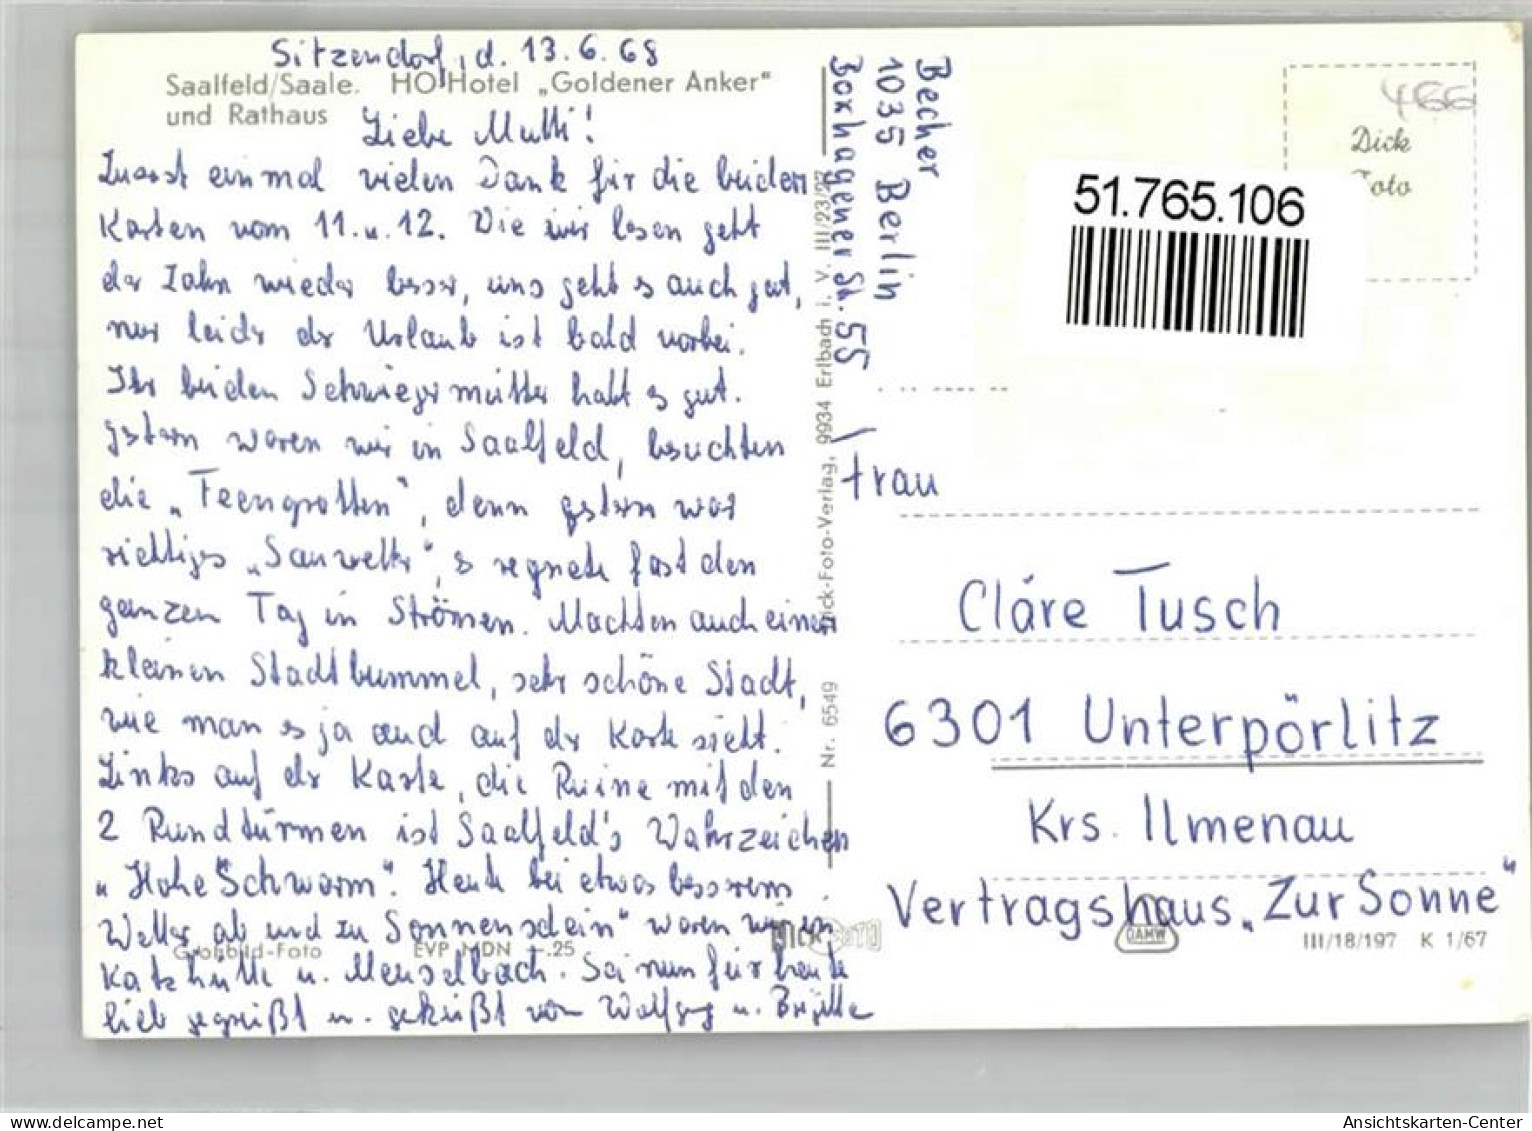 Sitzendorf, d. 13.6.68
Saalfeld/Saale. HO-Hotel „Goldener Anker"
und Rathaus
Liebe Mutti!
Zuerst einmal vielen Dank für die beiden
Karten vom 11. u. 12. Wie wir lesen geht
der Zahn wieder besser, uns geht es auch gut,
nur leider der Urlaub ist bald vorbei.
Ihr beiden Schwiegermütter habt es gut.
gestern waren wir in Saalfeld, besuchten
die „Feengrotten", denn gestern war
richtiges „Sauwetter", es regnete fast den
ganzen Tag in Strömen. Machten auch einen
kleinen Stadtbummel, sehr schöne Stadt,
wie man es ja auch auf der Karte sieht.
Links auf der Karte, die Ruine mit den
2 Rundtürmen ist Saalfeld's Wahrzeichen
„Hohe Schwarm". Heute bei etwas besserem
Wetter ab und zu Sonnenschein" waren wir in
Großbild-Foto EVP MDN -.25
Katzhütte u. Meuselbach. Sei nun für heute
lieb gegrüßt u. geküßt von Wolfgang u. Brigitte
Nr. 6549 Dick-Foto-Verlag, 9934 Erlbach i. V. III/23/27
Becher
1035 Berlin
Boxhagener Str. 55
Dick
Foto
466
51.765.106
Frau
Cläre Tusch
6301 Unterpörlitz
Krs. Ilmenau
Vertragshaus „Zur Sonne"
DAMW
III/18/197 K 1/67
www.akpool.de
Ansichtskarten-Center